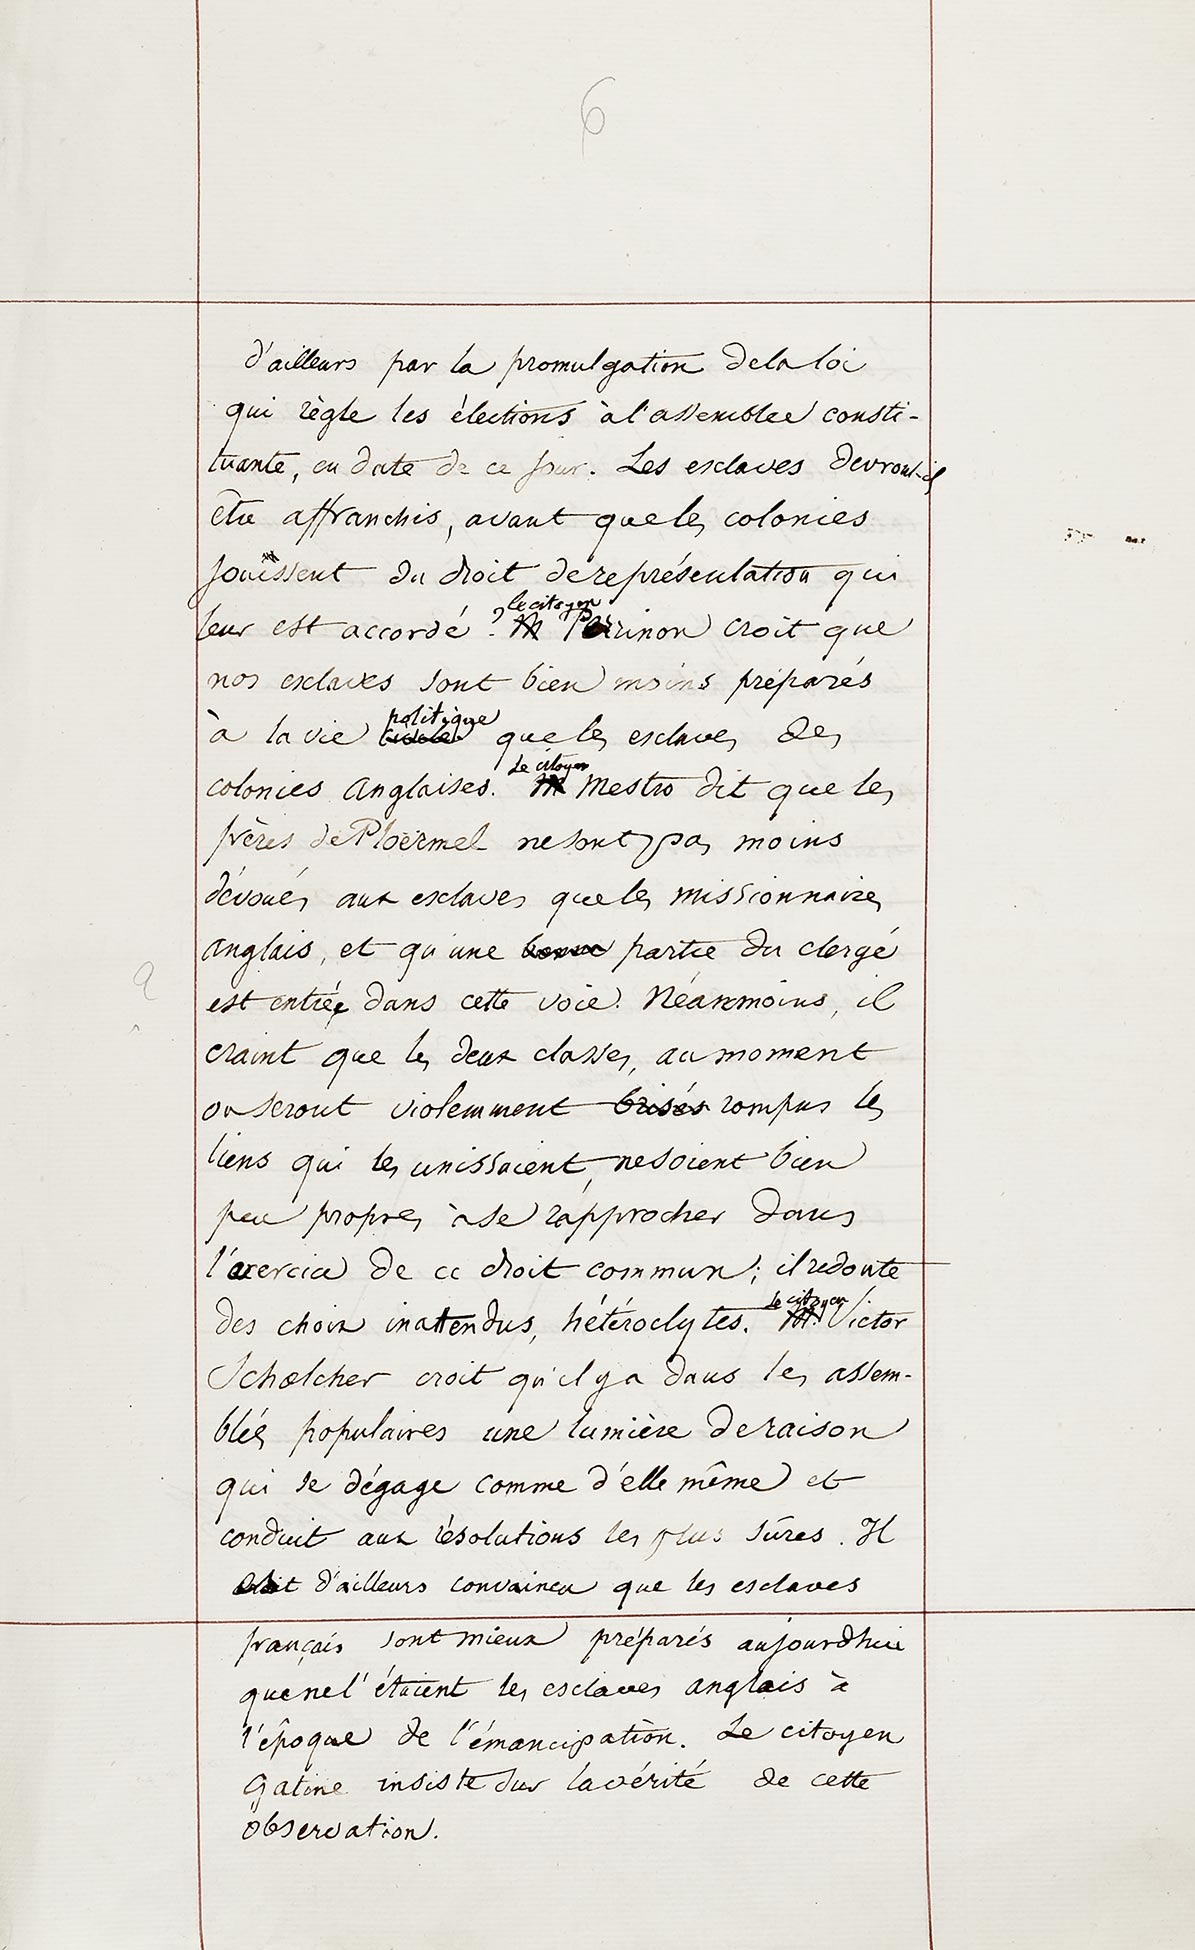 6
d'ailleurs par la promulgation de la loi
qui règle les élections à l'assemblée consti-
tuante, en date de ce jour. Les esclaves devront-ils
être affranchis, avant que les colonies
jouissent du droit de représentation qui
leur est accordé ? le citoyen Perrinon croit que
nos esclaves sont bien moins préparés
à la vie politique que les esclaves des
colonies anglaises. Le citoyen Mestro dit que les
frères de Ploërmel ne sont pas moins
dévoués aux esclaves que les missionnaires
anglais, et qu'une bonne partie du clergé
est entrée dans cette voie. Néanmoins, il
craint que les deux classes, au moment
où seront violemment brisés rompus les
liens qui les unissaient, ne soient bien
peu propres à se rapprocher dans
l'exercice de ce droit commun ; il redoute
des choix inattendus, hétéroclytes. Le citoyen Victor
Schœlcher croit qu'il y a dans les assem-
blées populaires une lumière de raison
qui se dégage comme d'elle même et
conduit aux résolutions les plus sûres. Il
est d'ailleurs convaincu que les esclaves
français sont mieux préparés aujourdhui
que ne l'étaient les esclaves anglais à
l'époque de l'émancipation. Le citoyen
Gatine insiste sur la vérité de cette
observation.